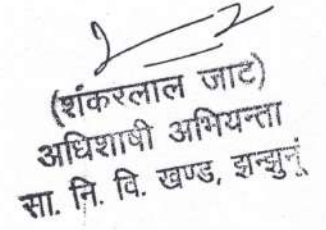 (शंकरलाल जाट)
अधिशाषी अभियन्ता
सा. नि. वि. खण्ड, झुन्झुनूं